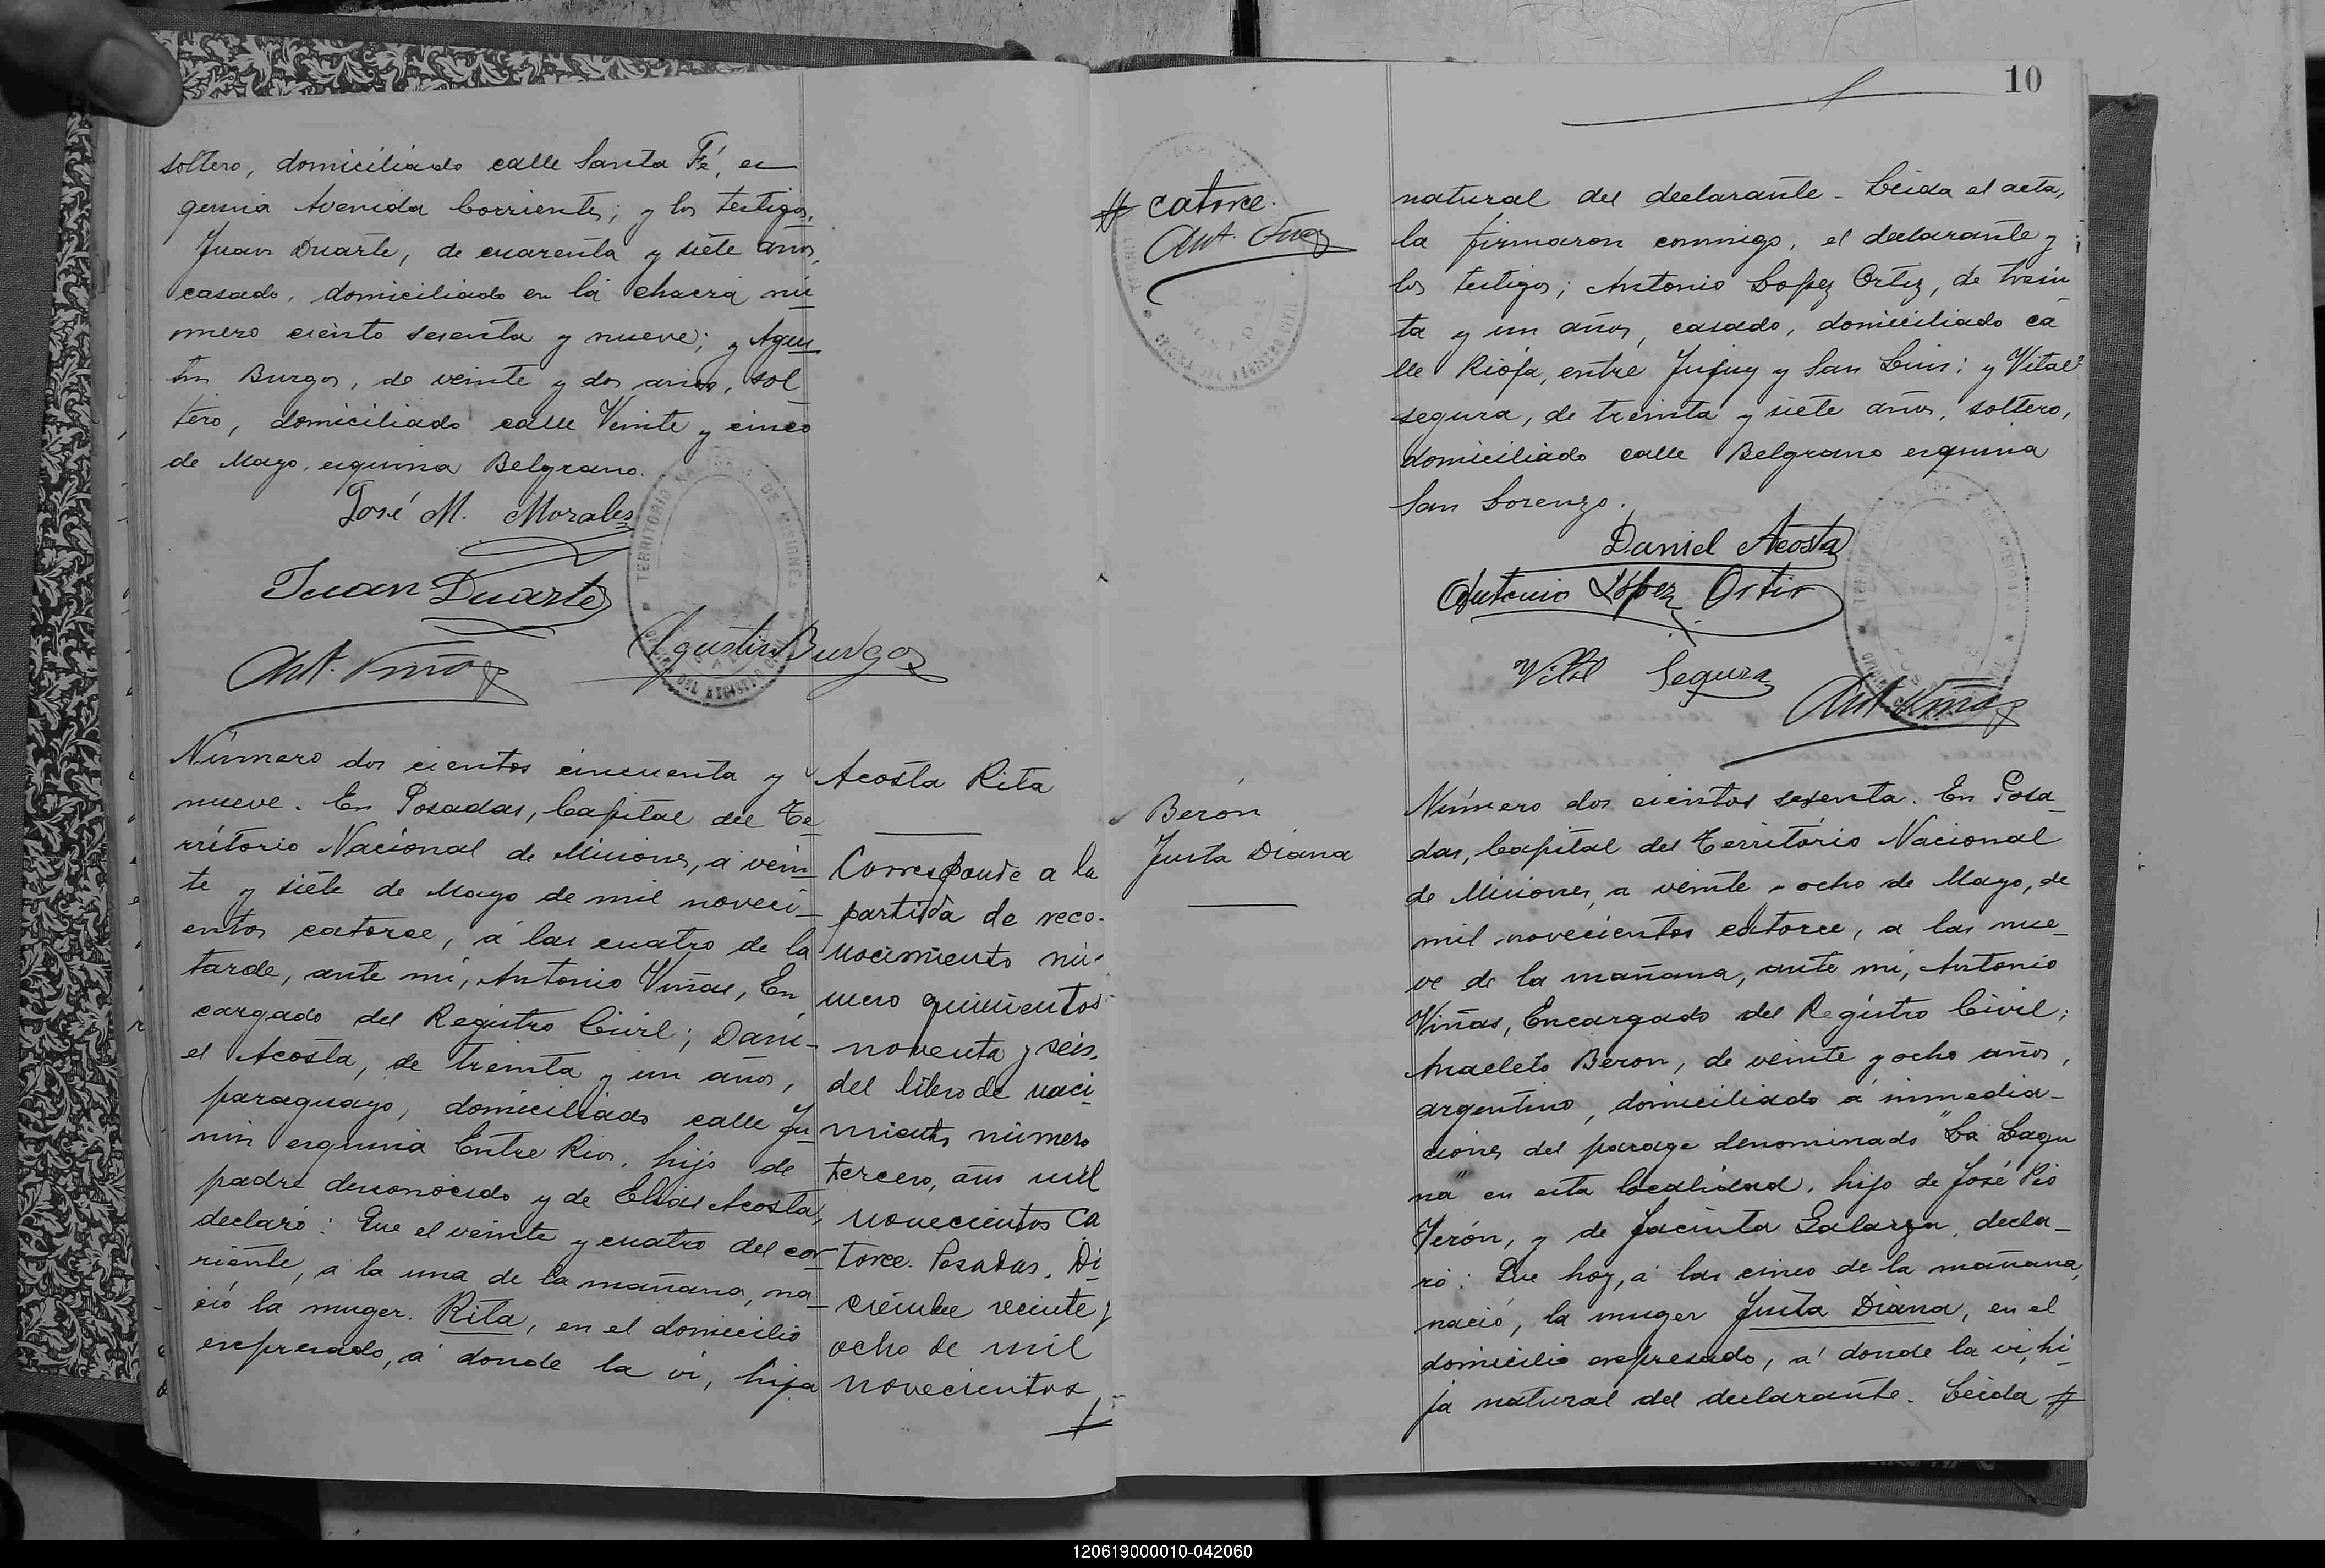 soltero, domiciliado calle Santa Fé, es
quina Avenida Corrientes; y los testigos,
Juan Duarte, de cuarenta y siete años,
casado, domiciliado en la chacra nú
mero ciento sesenta y nueve; y Agus
tin Burgos, de veinte y dos años, sol
tero, domiciliado calle Veinte y cinco
de Mayo, esquina Belgrano.
José M. Morales
Juan Duarte
Agustin Burgos
Ant. Viñas
TERRITORIO DE MISIONES
DEL REGISTRO CIVIL
Número dos cientos cincuenta y
nueve. En Posadas, Capital del Te
rritorio Nacional de Misiones, a vein
te y siete de Mayo de mil noveci
entos catorce, á las cuatro de la
tarde, ante mi, Antonio Viñas, En
cargado del Registro Civil; Dani-
el Acosta, de treinta y un años,
paraguayo, domiciliado calle Ju
nin esquina Entre Rios, hijo de
padre desconocido y de Elias Acosta,
declaró: Que el veinte y cuatro del cor
riente, a la una de la mañana, na
ció la muger. Rita, en el domicilio
expresado, á donde la vi, hija
Acosta Rita
Corresponde a la
partida de reco-
nocimiento nú-
mero quinientos
noventa y seis,
del libro de naci
miento número
tercero, año mil
novecientos ca
torce. Posadas, Di
ciembre veinte y
ocho de mil
novecientos
#
10
# catorce.
Ant. Viñas
natural del declarante - Leida el acta,
la firmaron conmigo, el declarante y
los testigos; Antonio Lopez Ortiz, de train
ta y un años, casado, domiciliado ca
lle Rioja, entre Jujuy y San Luis; y Vital
segura, de treinta y siete años, soltero,
domiciliado calle Belgrano esquina
San Lorenzo.
Daniel Acosta
Antonio López Ortiz
Vital Segura
Ant. Viñas
Berón
Justa Diana
Número dos cientos sesenta. En Posa
das, Capital del Territorio Nacional
de Misiones, a veinte y ocho de Mayo, de
mil novecientos catorce, a las nue
ve de la mañana, ante mi, Antonio
Viñas, Encargado del Registro Civil;
Anacleto Beron, de veinte y ocho años,
argentino, domiciliado á inmedia-
ciones del parage denominado "La Lagu
na" en esta localidad, hijo de José Pio
Verón, y de Jacinta Galarza, decla-
ró: Que hoy, á las cinco de la mañana,
nació, la muger Justa Diana, en el
domicilio expresado, á donde la vi, hi-
ja natural del declarante. Leida #
120619000010-042060